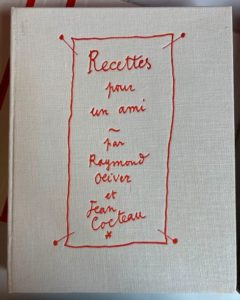 Recettes
pour
un ami
~
par
Raymond
Oliver
et
Jean
Cocteau
*